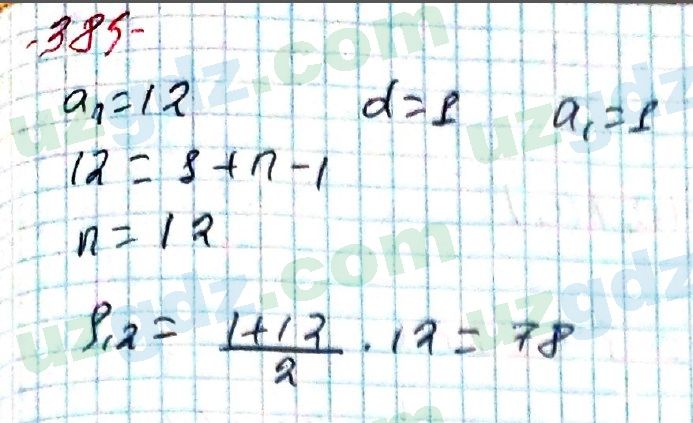 -385-
aₙ=12 d=1 a₁=1
12=1+n-1
n=12
S₁₂= (1+12)/2 · 12=78
uzgdz.com
uzgdz.com
uzgdz.com
uzgdz.com